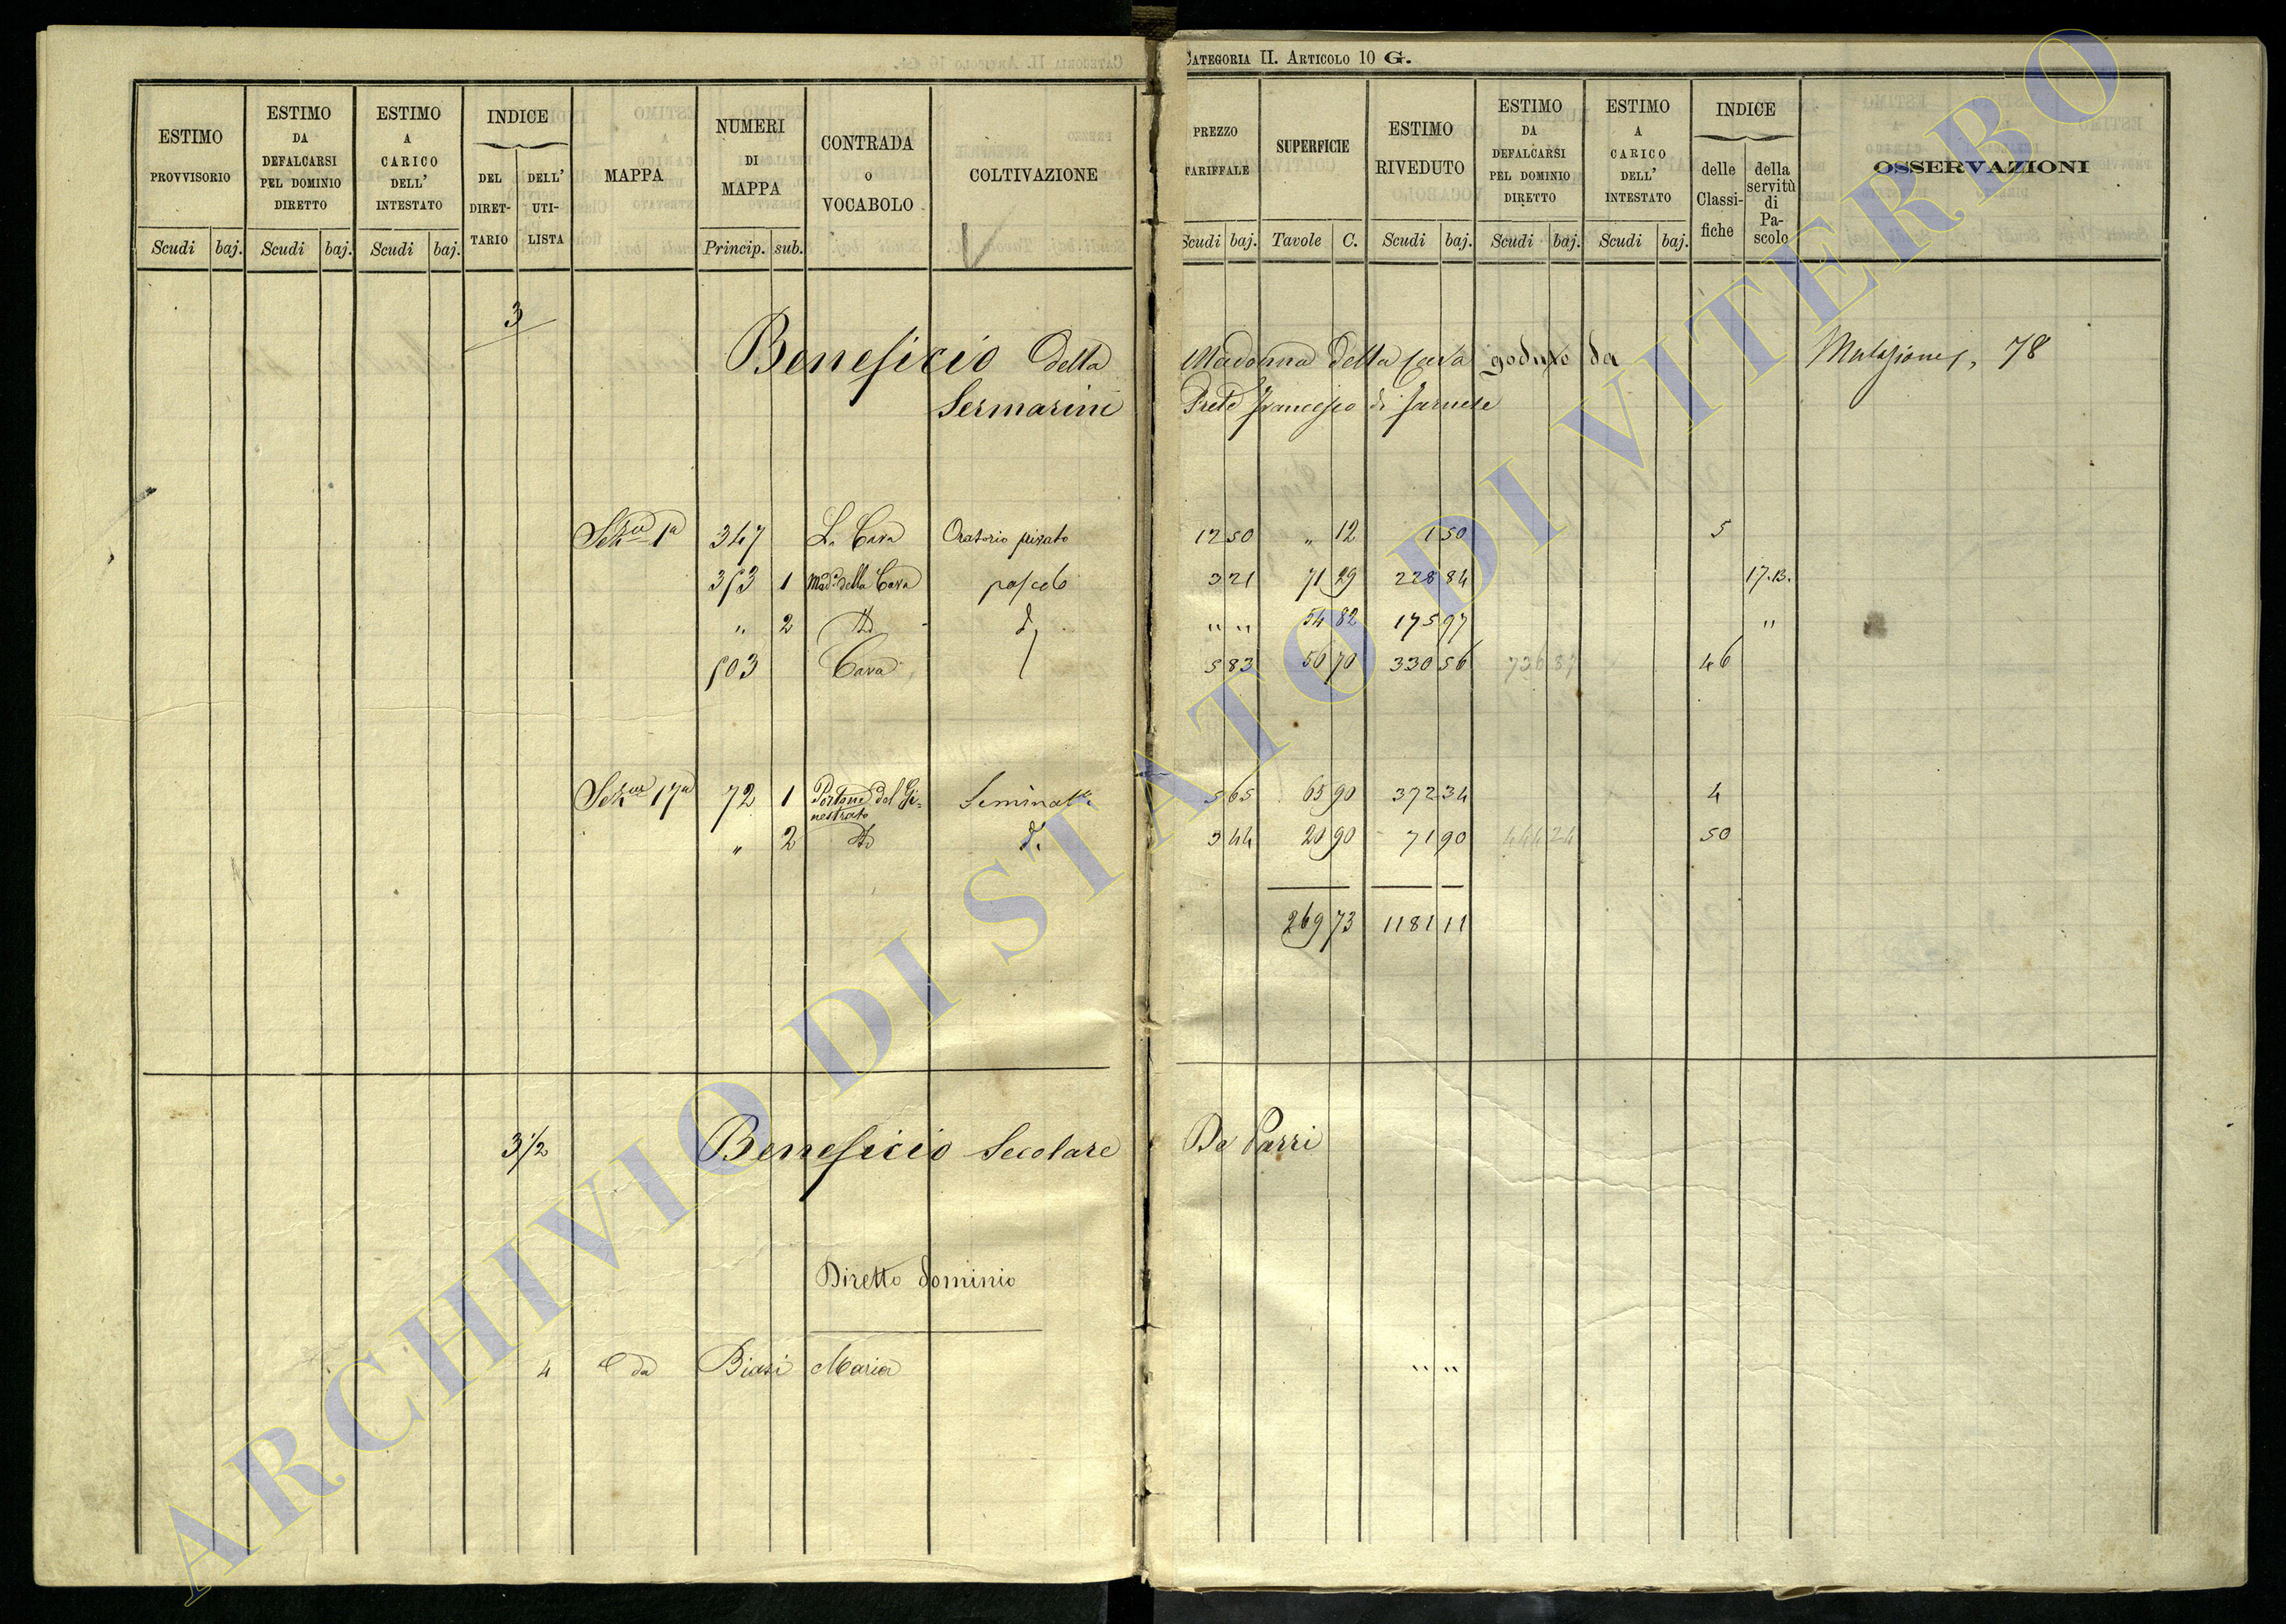 CATEGORIA II. ARTICOLO 10 G.
ESTIMO PROVVISORIO Scudi baj.
ESTIMO DA DEFALCARSI PEL DOMINIO DIRETTO Scudi baj.
ESTIMO A CARICO DELL' INTESTATO Scudi baj.
INDICE DEL DIRET-TARIO DELL' UTI-LISTA
MAPPA
NUMERI DI MAPPA Princip. sub.
CONTRADA O VOCABOLO
COLTIVAZIONE
PREZZO TARIFFALE Scudi baj.
SUPERFICIE Tavole C.
ESTIMO RIVEDUTO Scudi baj.
ESTIMO DA DEFALCARSI PEL DOMINIO DIRETTO Scudi baj.
ESTIMO A CARICO DELL' INTESTATO Scudi baj.
INDICE delle Classi-fiche della servitù di Pa-scolo
OSSERVAZIONI
3 Beneficio della Madonna della Cava goduto da Mutazioni, 78
Sermarini Prete Francesco di Farnese
Sez.ne 1a 347 La Cava Oratorio privato 12 50 " 12 1 50 5
353 1 Mad.a della Cava pascolo 3 21 71 29 228 84 17.13.
" 2 do do " " 54 82 175 97 "
503 Cava 5 83 56 70 330 56 736 87 46
Sez.ne 17a 72 1 Portone del Gi= Seminat.o 5 65 65 90 372 34 4
nestrato
" 2 do do 3 44 20 90 71 90 444 24 50
269 73 1181 11
3 1/2 Beneficio Secolare De Parri
Diretto dominio
4 E da Biasi Maria " "
ARCHIVIO DI STATO DI VITERBO